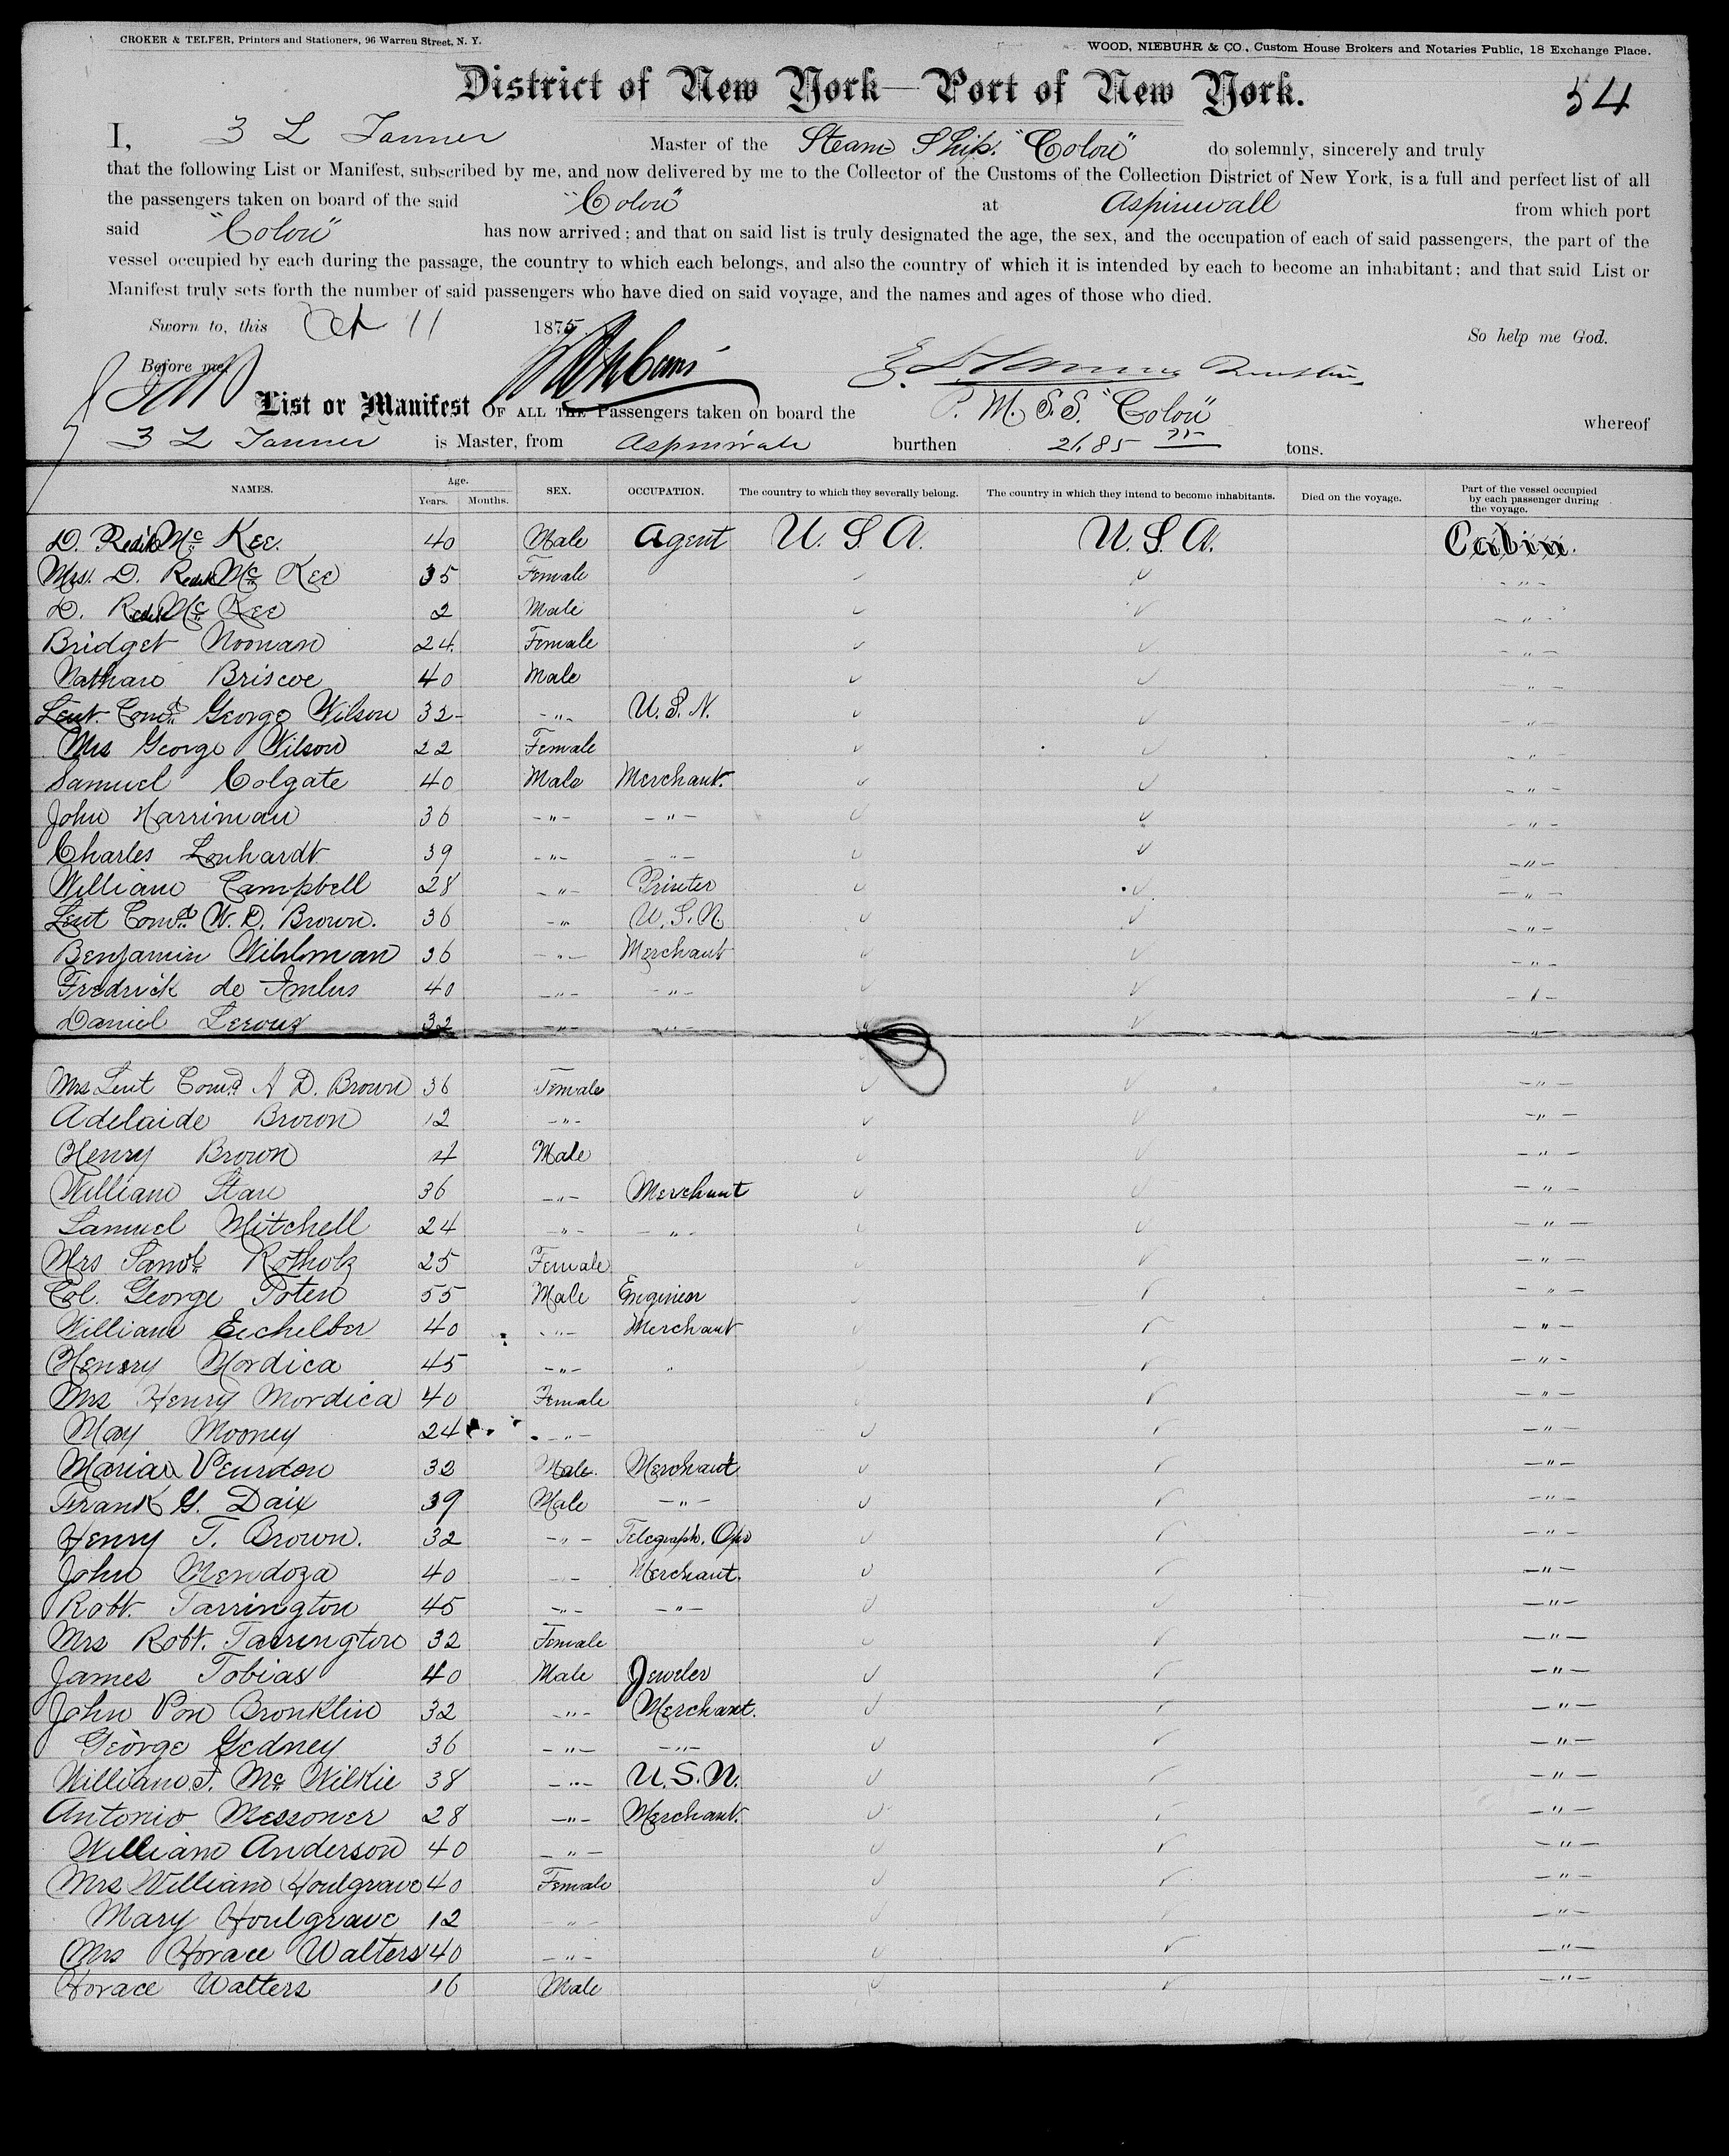 CROKER & TELFER, Printers and Stationers, 96 Warren Street, N. Y.
WOOD, NIEBUHR & CO., Custom House Brokers and Notaries Public, 18 Exchange Place.
District of New York—Port of New York.
54
I, 3 L Tanner Master of the Steam Ship. "Colon" do solemnly, sincerely and truly
that the following List or Manifest, subscribed by me, and now delivered by me to the Collector of the Customs of the Collection District of New York, is a full and perfect list of all
the passengers taken on board of the said "Colon" at Aspinwall from which port
said "Colon" has now arrived; and that on said list is truly designated the age, the sex, and the occupation of each of said passengers, the part of the
vessel occupied by each during the passage, the country to which each belongs, and also the country of which it is intended by each to become an inhabitant; and that said List or
Manifest truly sets forth the number of said passengers who have died on said voyage, and the names and ages of those who died.
Sworn to, this Oct 11 1875. So help me God.
Before me
List or Manifest OF ALL THE Passengers taken on board the P. M. S.S. "Colon" whereof
3 L Tanner is Master, from Aspinwall burthen 2185 tons.
NAMES. Age. Years. Months. SEX. OCCUPATION. The country to which they severally belong. The country in which they intend to become inhabitants. Died on the voyage. Part of the vessel occupied by each passenger during the voyage.
D. Mc Kee. 40 Male Agent U. S. A. U. S. A. Cabin.
Mrs. D. Mc Kee 35 Female ✓ ✓ -"-
D. Mc Kee 2 Male ✓ ✓ -"-
Bridget Noonan 24. Female ✓ ✓ -"-
Nathan Briscoe 40 Male ✓ ✓ -"-
Leut. Comd. George Wilson 32- -"- U. S. N. ✓ ✓ -"-
Mrs George Wilson 22 Female ✓ ✓ -"-
Samuel Colgate 40 Male Merchant. ✓ ✓ -"-
John Harriman 36 -"- -"- ✓ ✓ -"-
Charles Lenhardt 39 -"- -"- ✓ ✓ -"-
William Campbell 28 -"- Printer ✓ ✓ -"-
Leut Comd. W. D. Brown. 36 -"- U. S. N. ✓ ✓ -"-
Benjamin 36 -"- Merchant ✓ ✓ -"-
Fredrick de 40 -"- -"- ✓ ✓ -"-
Daniel Leroux 32 -"- -"- ✓ ✓ -"-
Mrs Leut Comd. A D. Brown 36 Female ✓ ✓ -"-
Adelaide Brown 12 -"- ✓ ✓ -"-
Henry Brown 4 Male ✓ ✓ -"-
William Stan 36 -"- Merchant ✓ ✓ -"-
Samuel Mitchell 24 -"- -"- ✓ ✓ -"-
Mrs Saml Rotholz 25 Female ✓ ✓ -"-
Col. George Toten 55 Male Engineer ✓ -"-
William Eichelber 40 -"- Merchant ✓ ✓ -"-
Henry Mordica 45 -"- " ✓ -"-
Mrs Henry Mordica 40 Female ✓ -"-
May Mooney 24 -"- ✓ ✓ -"-
Maria 32 Male. Merchant ✓ ✓ -"-
Frank G. Daix 39 Male -"- ✓ ✓ -"-
Henry T. Brown. 32 -"- Telegraph. Opr ✓ ✓ -"-
John Mendoza 40 -"- Merchant. ✓ ✓ -"-
Robt. Tarrington 45 -"- -"- ✓ ✓ -"-
Mrs Robt. Tarrington 32 Female ✓ ✓ -"-
James Tobias 40 Male Jeweler ✓ ✓ -"-
John Von Bronklin 32 -"- Merchant. ✓ ✓ -"-
George Gedney 36 -"- -"- ✓ ✓ -"-
William J. Mc Wilkie 38 -"- U. S. N. ✓ ✓ -"-
Antonio Messoner 28 -"- Merchant. ✓ ✓ -"-
William Anderson 40 -"- ✓ ✓ -"-
Mrs William Houlgrave 40 Female ✓ ✓ -"-
Mary Houlgrave 12 -"- ✓ ✓ -"-
Mrs Horace Walters 40 -"- ✓ ✓ -"-
Horace Walters 16 Male ✓ ✓ -"-